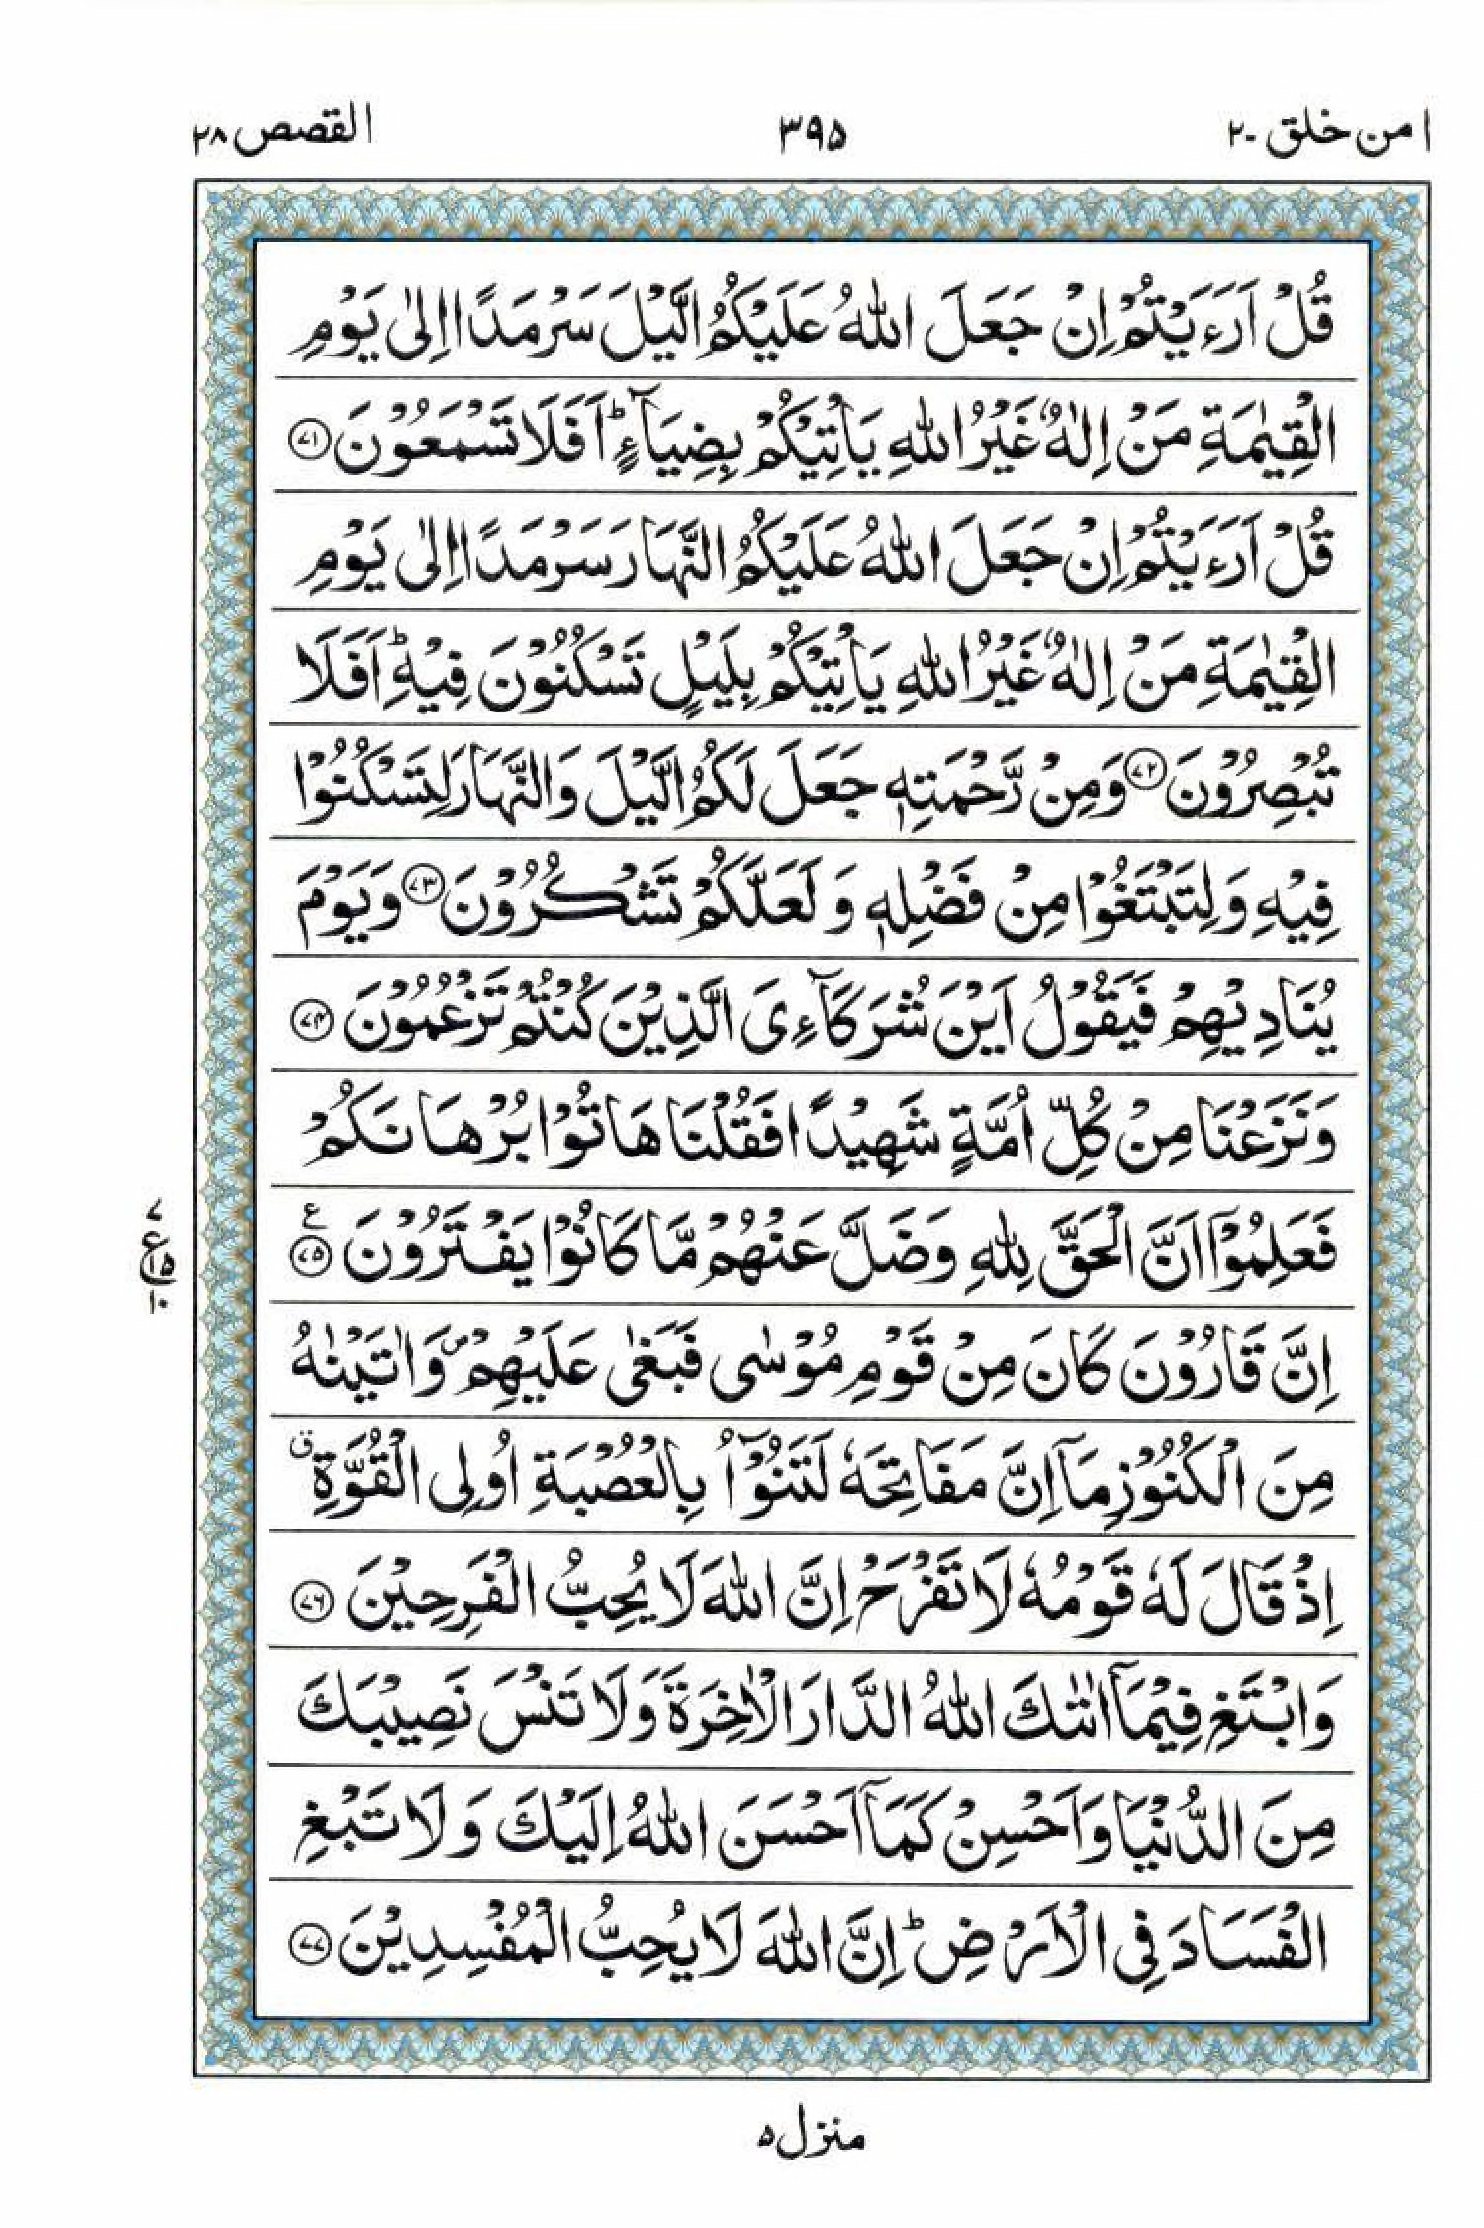 امن خلق ۲۰
۳۹۵
القصص ۲۸
قُلْ اَرَءَيْتُمْ اِنْ جَعَلَ اللّٰهُ عَلَيْكُمُ الَّيْلَ سَرْمَدًا اِلٰى يَوْمِ
الْقِيٰمَةِ مَنْ اِلٰهٌ غَيْرُ اللّٰهِ يَاْتِيْكُمْ بِضِيَآءٍ ؕ اَفَلَا تَسْمَعُوْنَ ۷۱
قُلْ اَرَءَيْتُمْ اِنْ جَعَلَ اللّٰهُ عَلَيْكُمُ النَّهَارَ سَرْمَدًا اِلٰى يَوْمِ
الْقِيٰمَةِ مَنْ اِلٰهٌ غَيْرُ اللّٰهِ يَاْتِيْكُمْ بِلَيْلٍ تَسْكُنُوْنَ فِيْهِ ؕ اَفَلَا
تُبْصِرُوْنَ ۷۲ وَمِنْ رَّحْمَتِهٖ جَعَلَ لَكُمُ الَّيْلَ وَالنَّهَارَ لِتَسْكُنُوْا
فِيْهِ وَلِتَبْتَغُوْا مِنْ فَضْلِهٖ وَلَعَلَّكُمْ تَشْكُرُوْنَ ۷۳ وَيَوْمَ
يُنَادِيْهِمْ فَيَقُوْلُ اَيْنَ شُرَكَآءِىَ الَّذِيْنَ كُنْتُمْ تَزْعُمُوْنَ ۷۴
وَنَزَعْنَا مِنْ كُلِّ اُمَّةٍ شَهِيْدًا فَقُلْنَا هَاتُوْا بُرْهَانَكُمْ
فَعَلِمُوْۤا اَنَّ الْحَقَّ لِلّٰهِ وَضَلَّ عَنْهُمْ مَّا كَانُوْا يَفْتَرُوْنَ ۷۵ ع
۷ ع ۱۵ ۱۰
اِنَّ قَارُوْنَ كَانَ مِنْ قَوْمِ مُوْسٰى فَبَغٰى عَلَيْهِمْ ۪ وَاٰتَيْنٰهُ
مِنَ الْكُنُوْزِ مَاۤ اِنَّ مَفَاتِحَهٗ لَتَنُوْٓاُ بِالْعُصْبَةِ اُولِى الْقُوَّةِ ق
اِذْ قَالَ لَهٗ قَوْمُهٗ لَا تَفْرَحْ اِنَّ اللّٰهَ لَا يُحِبُّ الْفَرِحِيْنَ ۷۶
وَابْتَغِ فِيْمَاۤ اٰتٰىكَ اللّٰهُ الدَّارَ الْاٰخِرَةَ وَلَا تَنْسَ نَصِيْبَكَ
مِنَ الدُّنْيَا وَاَحْسِنْ كَمَاۤ اَحْسَنَ اللّٰهُ اِلَيْكَ وَلَا تَبْغِ
الْفَسَادَ فِى الْاَرْضِ ؕ اِنَّ اللّٰهَ لَا يُحِبُّ الْمُفْسِدِيْنَ ۷۷
منزل ۵